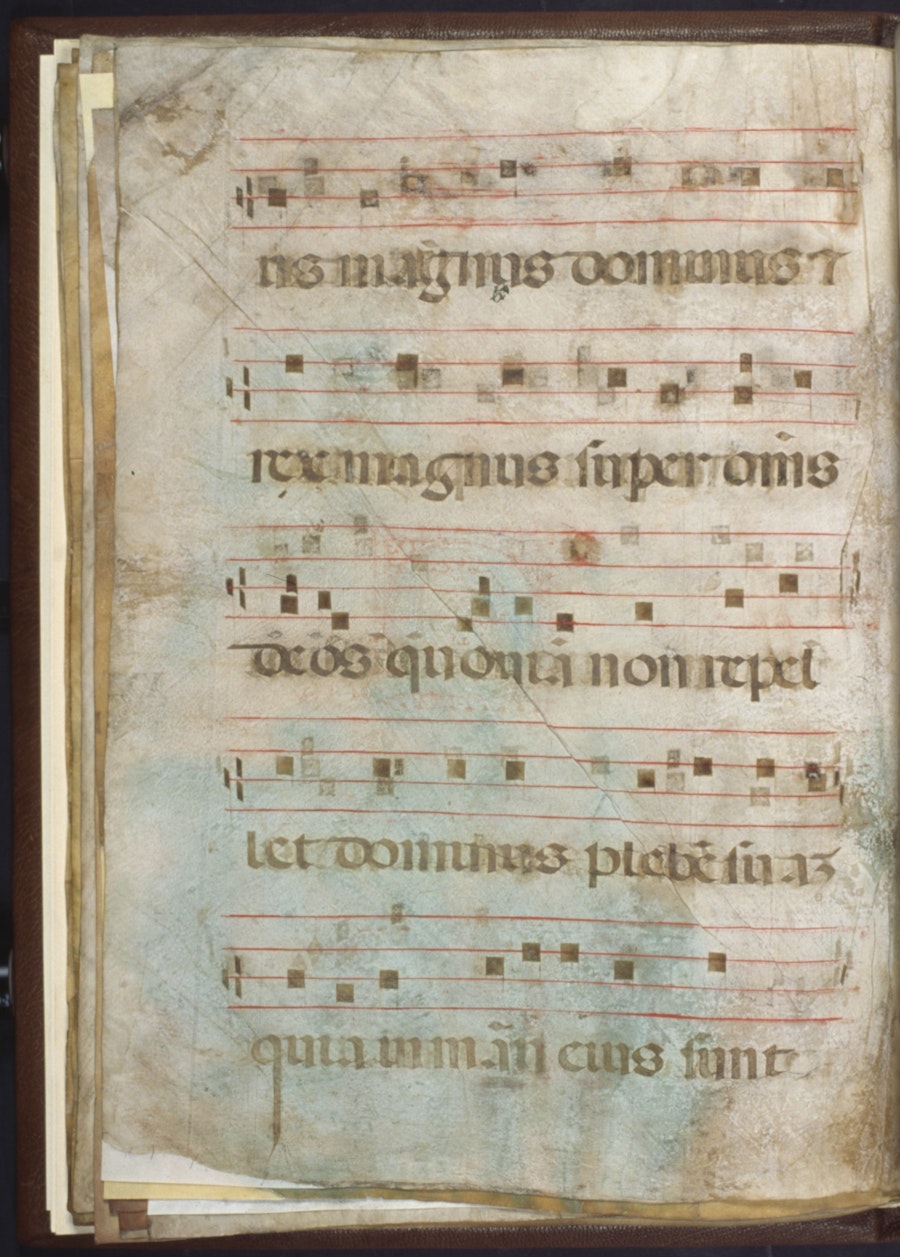 us magnus dominus ⁊
rex magnus super om̄s
deos quoniā non repel
let dominus plebē suaʒ
quia in manu eius sunt